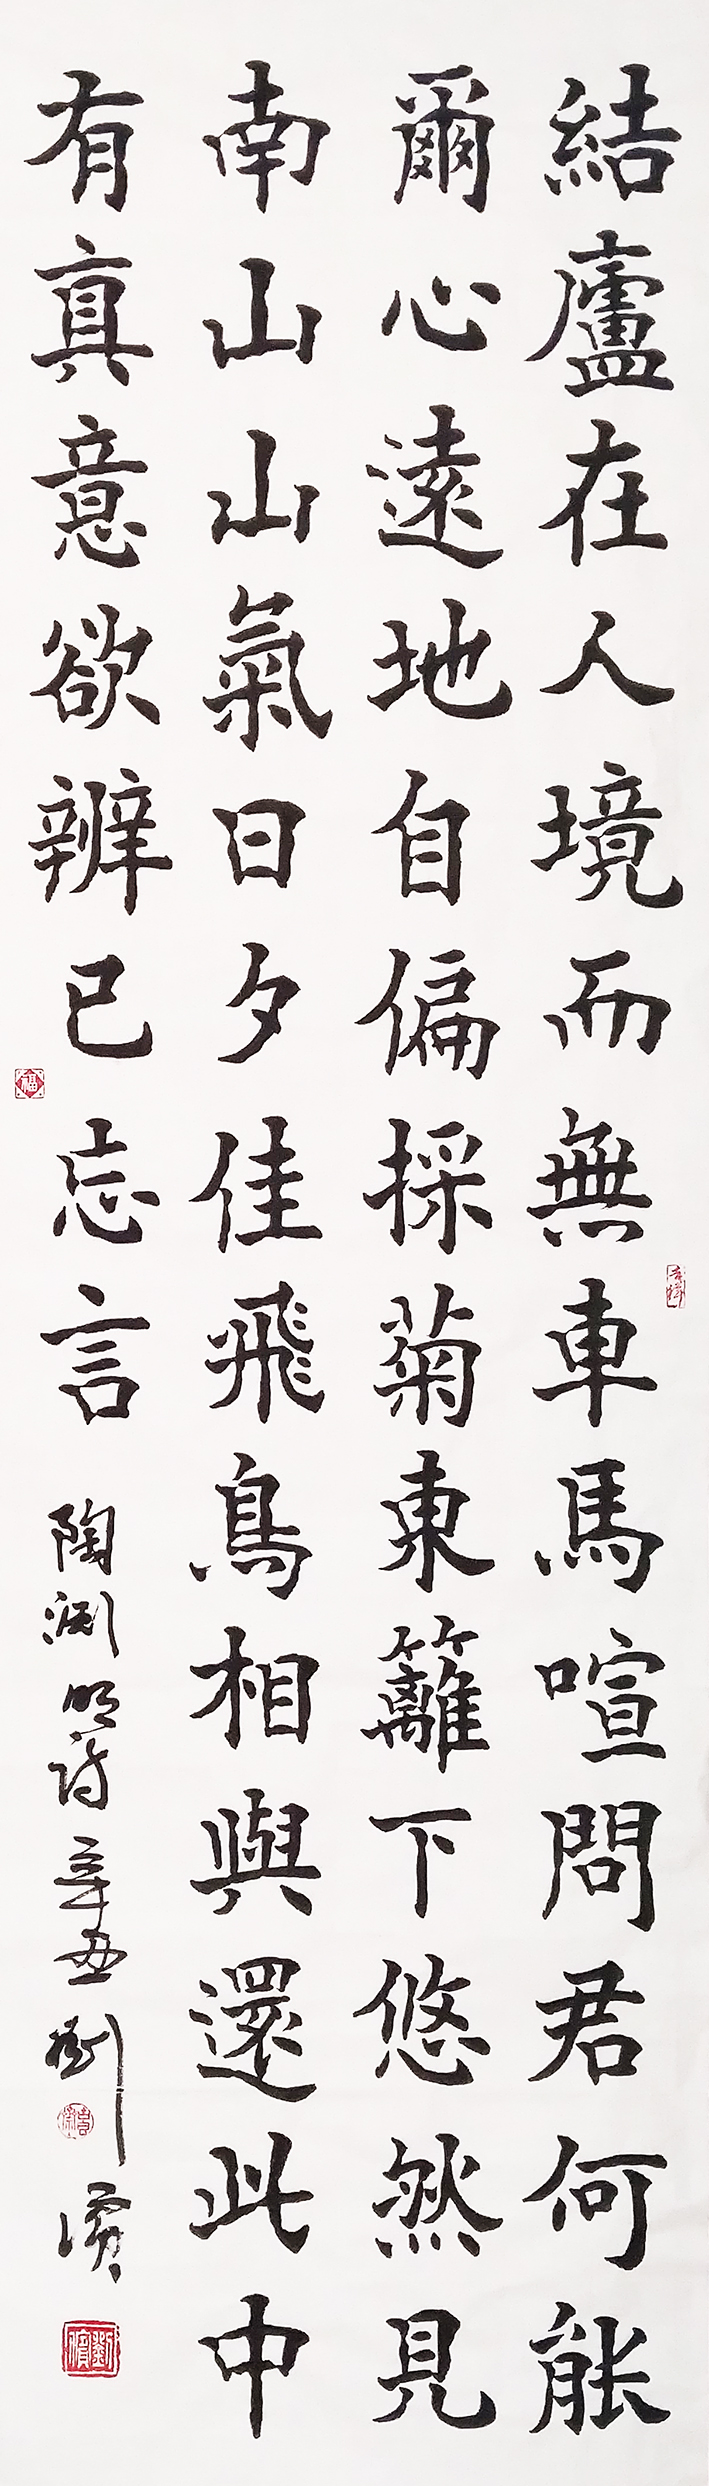 結廬在人境而無車馬喧問君何能
爾心遠地自偏採菊東籬下悠然見
南山山氣日夕佳飛鳥相與還此中
有真意欲辨已忘言 陶淵明詩 辛丑 劉
福